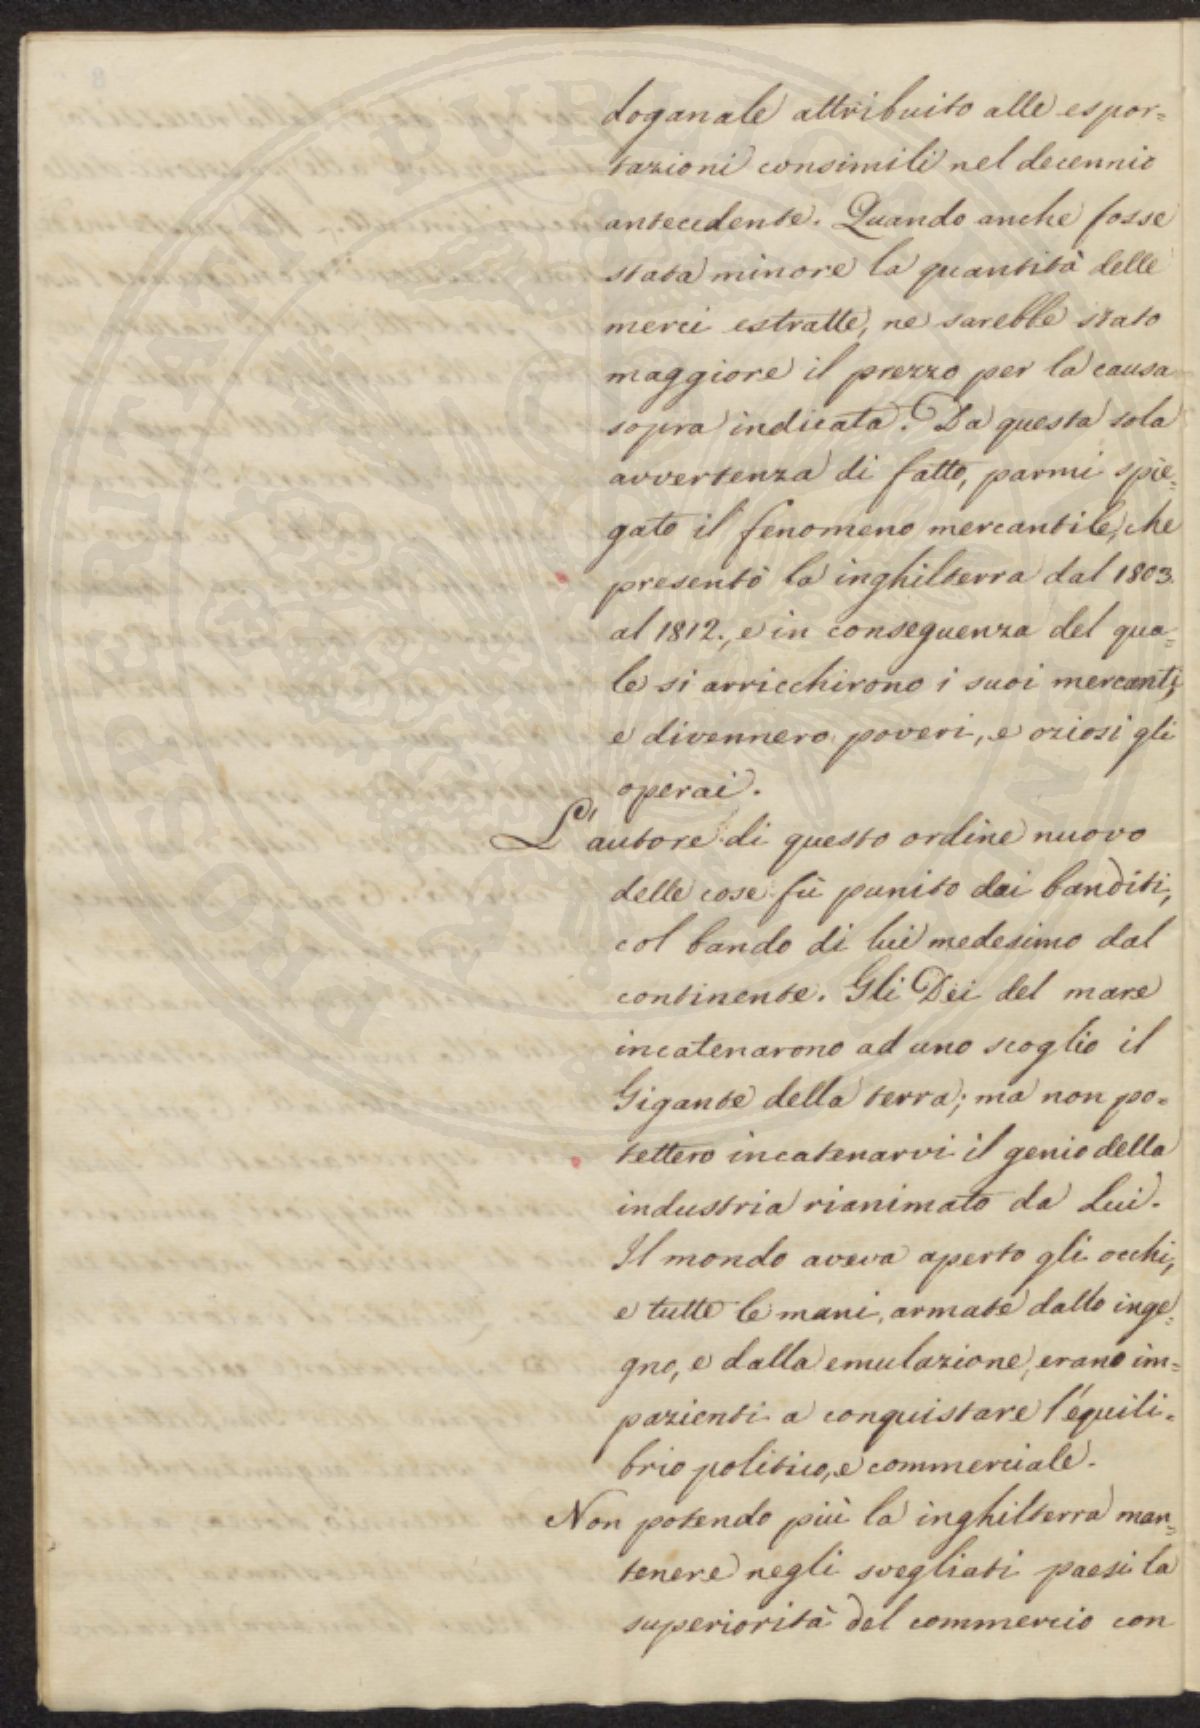 doganale attribuito alle espor=
tazioni consimili nel decennio
antecedente. Quando anche fosse
stata minore la quantità delle
merci estratte, ne sarebbe stato
maggiore il prezzo per la causa
sopra indicata. Da questa sola
avvertenza di fatto, parmi spie=
gato il fenomeno mercantile, che
presentò la inghilterra dal 1803.
al 1812., e in conseguenza del qua=
le si arricchirono i suoi mercanti,
e divennero poveri, e oziosi gli
operai.
L'autore di questo ordine nuovo
delle cose fù punito dai banditi,
col bando di lui medesimo dal
continente. Gli Dei del mare
incatenarono ad uno scoglio il
Gigante della terra; ma non po=
tettero incatenarvi il genio della
industria rianimato da Lui.
Il mondo aveva aperto gli occhi,
e tutte le mani, armate dallo inge=
gno, e dalla emulazione, erano im=
pazienti a conquistare l'équili=
brio politico, e commerciale.
Non potendo più la inghilterra man=
tenere negli svegliati paesi la
superiorità del commercio con